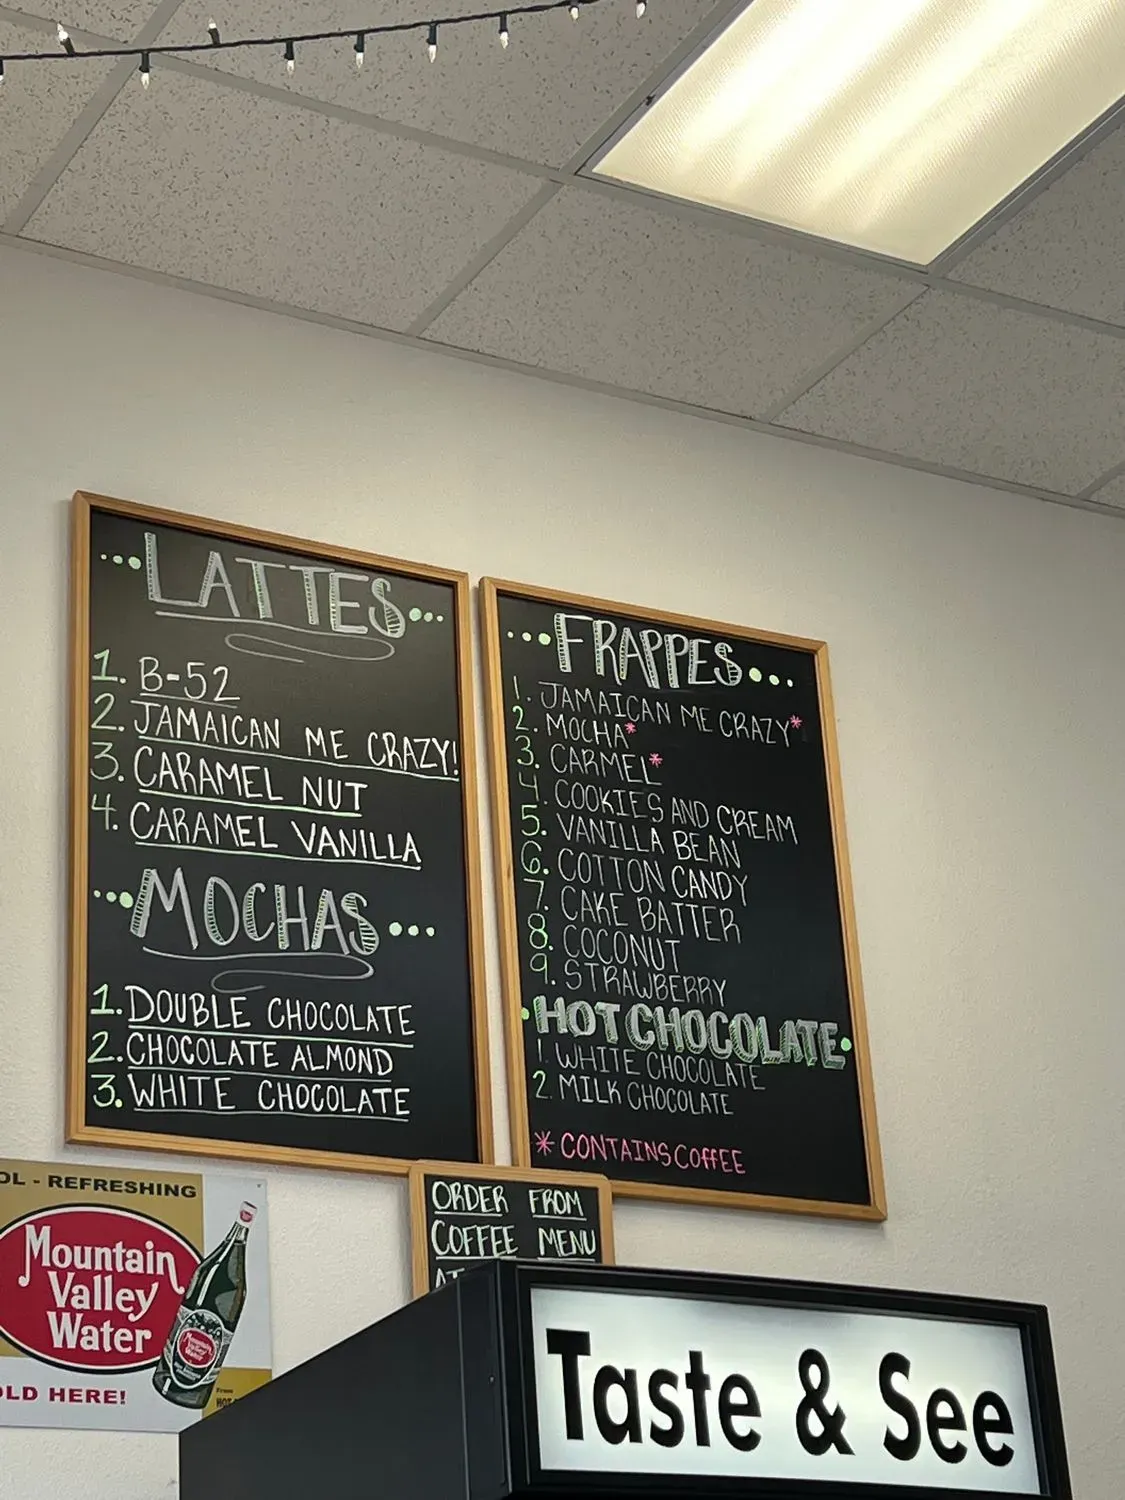 LATTES
1. B-52
2. JAMAICAN ME CRAZY!
3. CARAMEL NUT
4. CARAMEL VANILLA
MOCHAS
1. DOUBLE CHOCOLATE
2. CHOCOLATE ALMOND
3. WHITE CHOCOLATE
FRAPPES
1. JAMAICAN ME CRAZY*
2. MOCHA*
3. CARMEL*
4. COOKIES AND CREAM
5. VANILLA BEAN
6. COTTON CANDY
7. CAKE BATTER
8. COCONUT
9. STRAWBERRY
HOT CHOCOLATE
1. WHITE CHOCOLATE
2. MILK CHOCOLATE
* CONTAINS COFFEE
ORDER FROM
COFFEE MENU
OL - REFRESHING
Mountain
Valley
Water
OLD HERE!
Mountain
Valley
Water
From
Taste & See